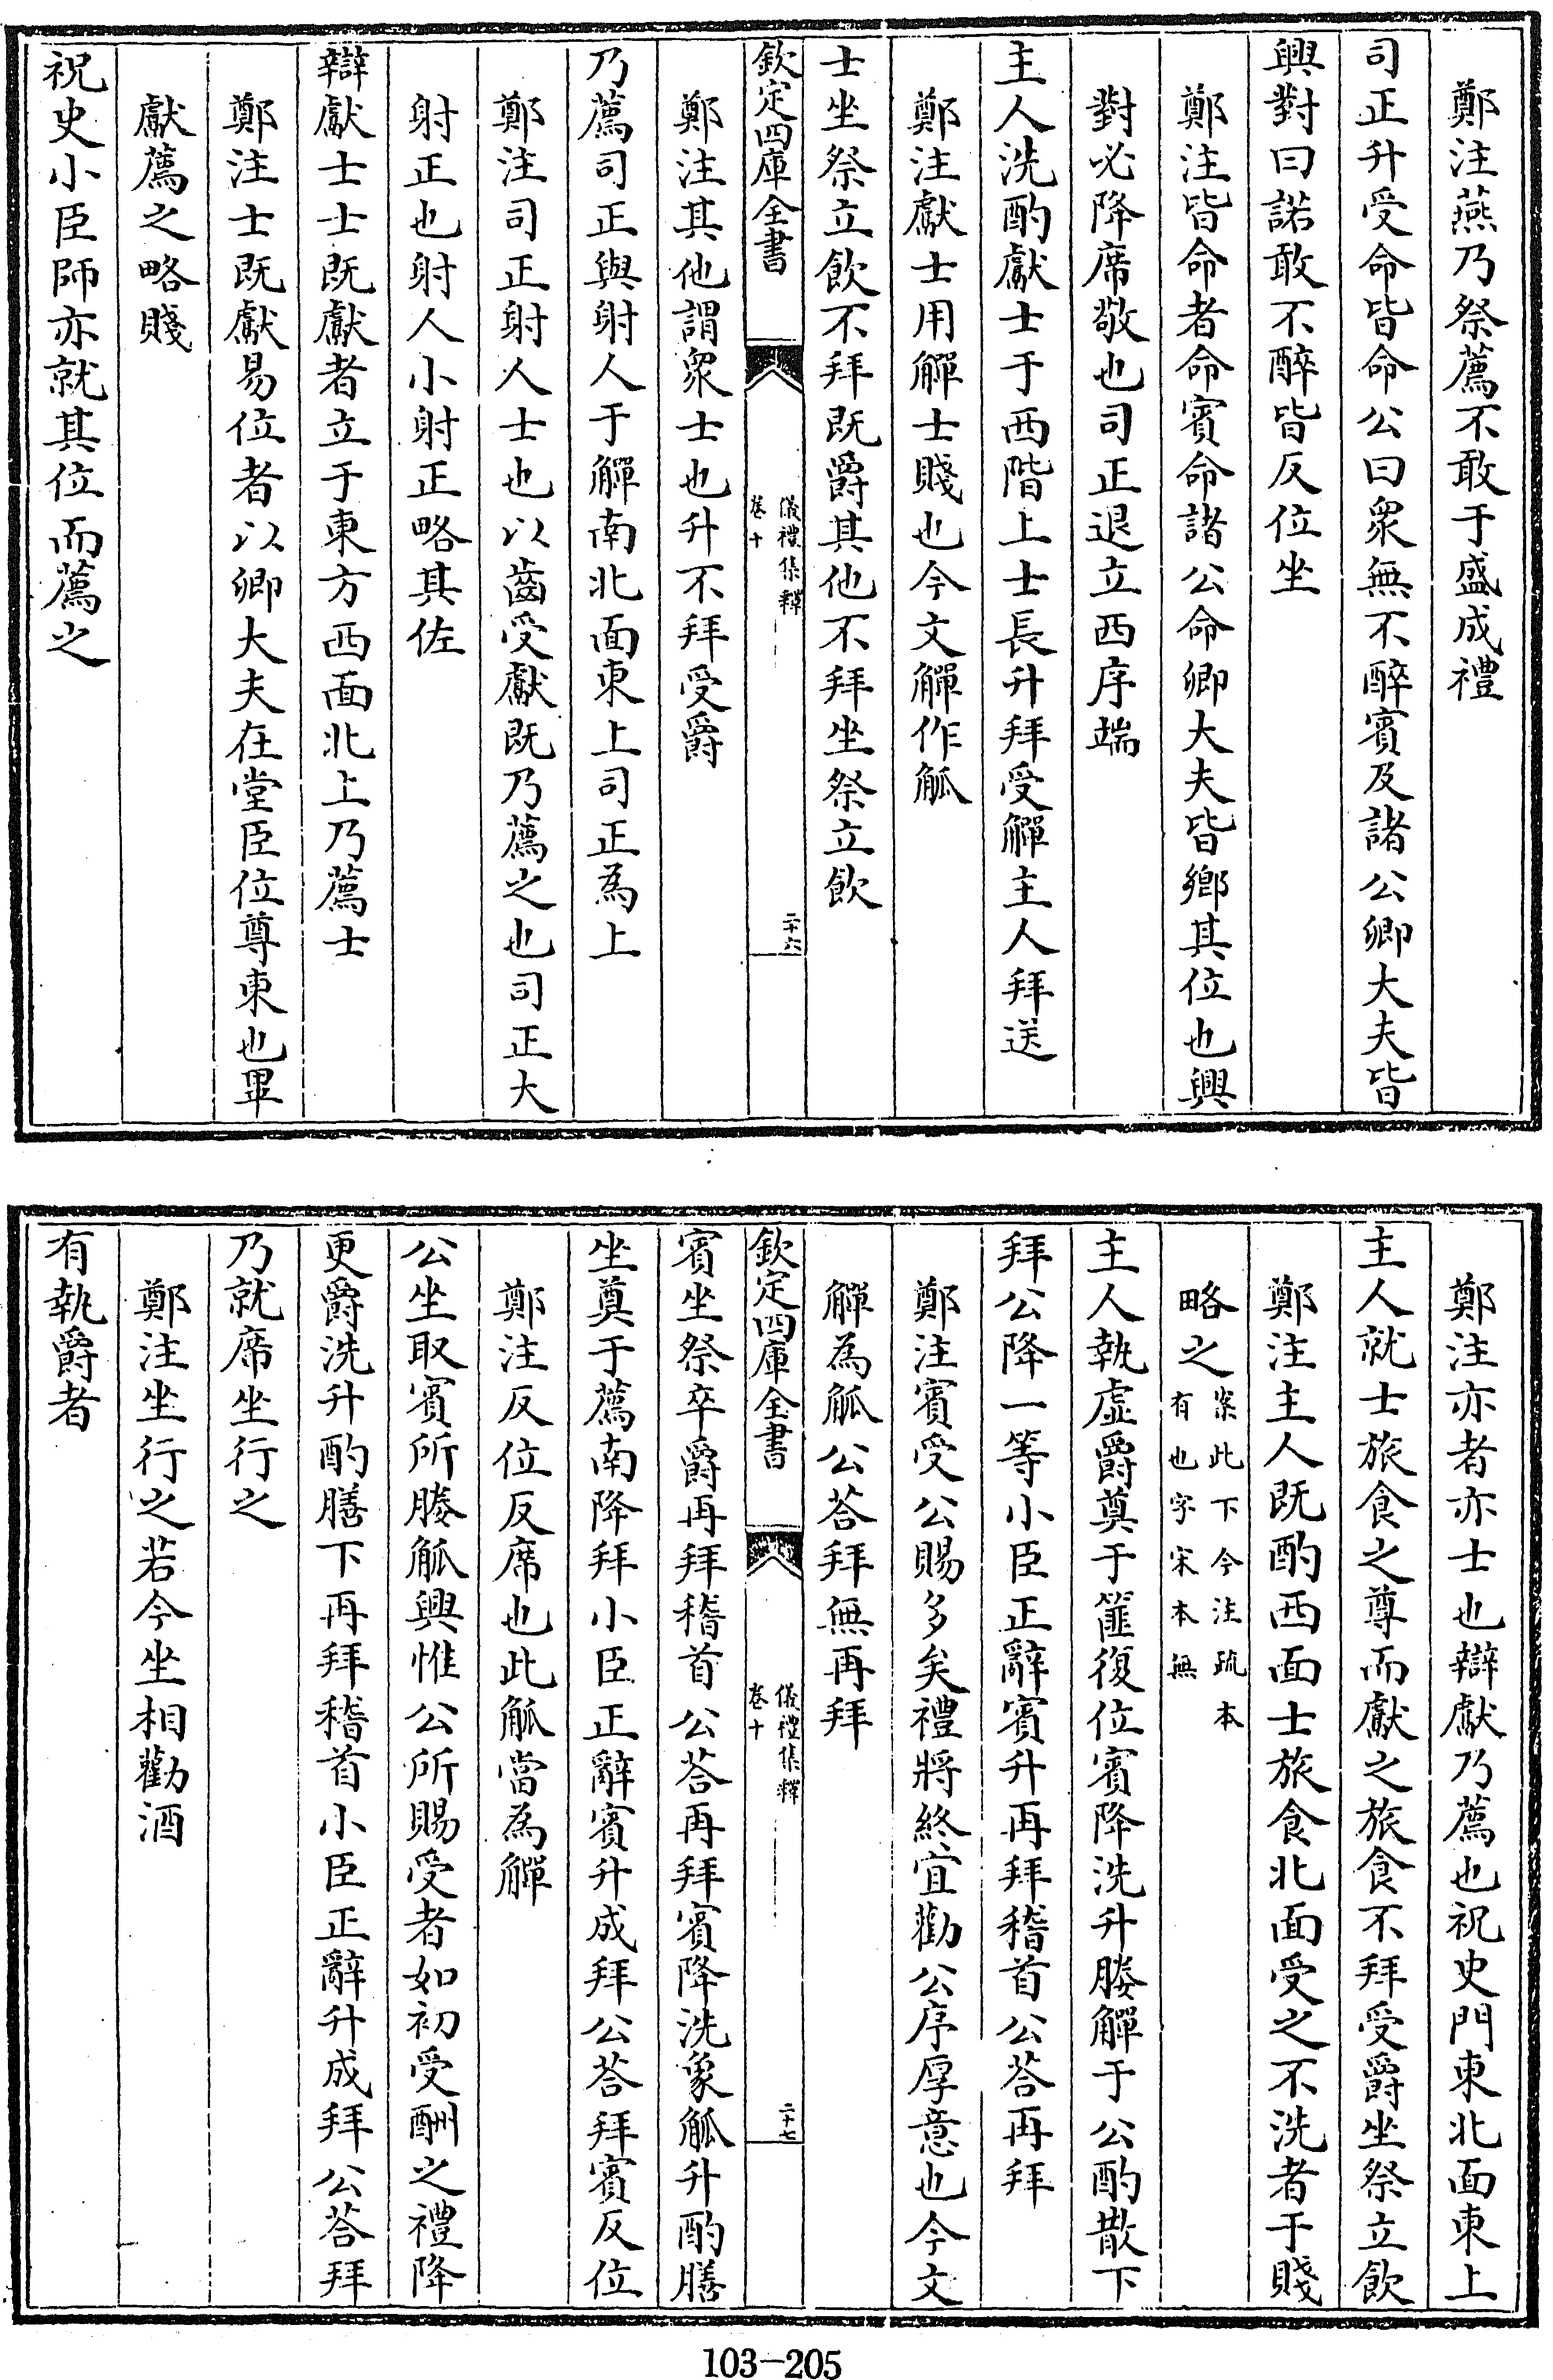 鄭注燕乃祭薦不敢于盛成禮
司正升受命皆命公曰衆無不醉賓及諸公卿大夫皆
興對曰諾敢不醉皆反位坐
鄭注皆命者命賓命諸公命卿大夫皆鄉其位也興
對必降席敬也司正退立西序端
主人洗酌獻士于西階上士長升拜受觶主人拜送
鄭注獻士用觶士賤也今文觶作觚
士坐祭立飲不拜既爵其他不拜坐祭立飲
欽定四庫全書
儀禮集釋
卷十
二十六
鄭注其他謂衆士也升不拜受爵
乃薦司正與射人于觶南北面東上司正為上
鄭注司正射人士也以齒受獻既乃薦之也司正大
射正也射人小射正略其佐
辯獻士士既獻者立于東方西面北上乃薦士
鄭注士既獻易位者以卿大夫在堂臣位尊東也畢
獻薦之略賤
祝史小臣師亦就其位而薦之
鄭注亦者亦士也辯獻乃薦也祝史門東北面東上
主人就士旅食之尊而獻之旅食不拜受爵坐祭立飲
鄭注主人既酌西面士旅食北面受之不洗者于賤
略之案此下今注疏本
有也字宋本無
主人執虛爵奠于篚復位賓降洗升媵觶于公酌散下
拜公降一等小臣正辭賓升再拜稽首公荅再拜
鄭注賓受公賜多矣禮將終宜勸公序厚意也今文
觶為觚公荅拜無再拜
欽定四庫全書
儀禮集釋
卷十
二十七
賓坐祭卒爵再拜稽首公荅再拜賓降洗象觚升酌膳
坐奠于薦南降拜小臣正辭賓升成拜公荅拜賓反位
鄭注反位反席也此觚當為觶
公坐取賓所媵觚興惟公所賜受者如初受酬之禮降
更爵洗升酌膳下再拜稽首小臣正辭升成拜公荅拜
乃就席坐行之
鄭注坐行之若今坐相勸酒
有執爵者
103-205